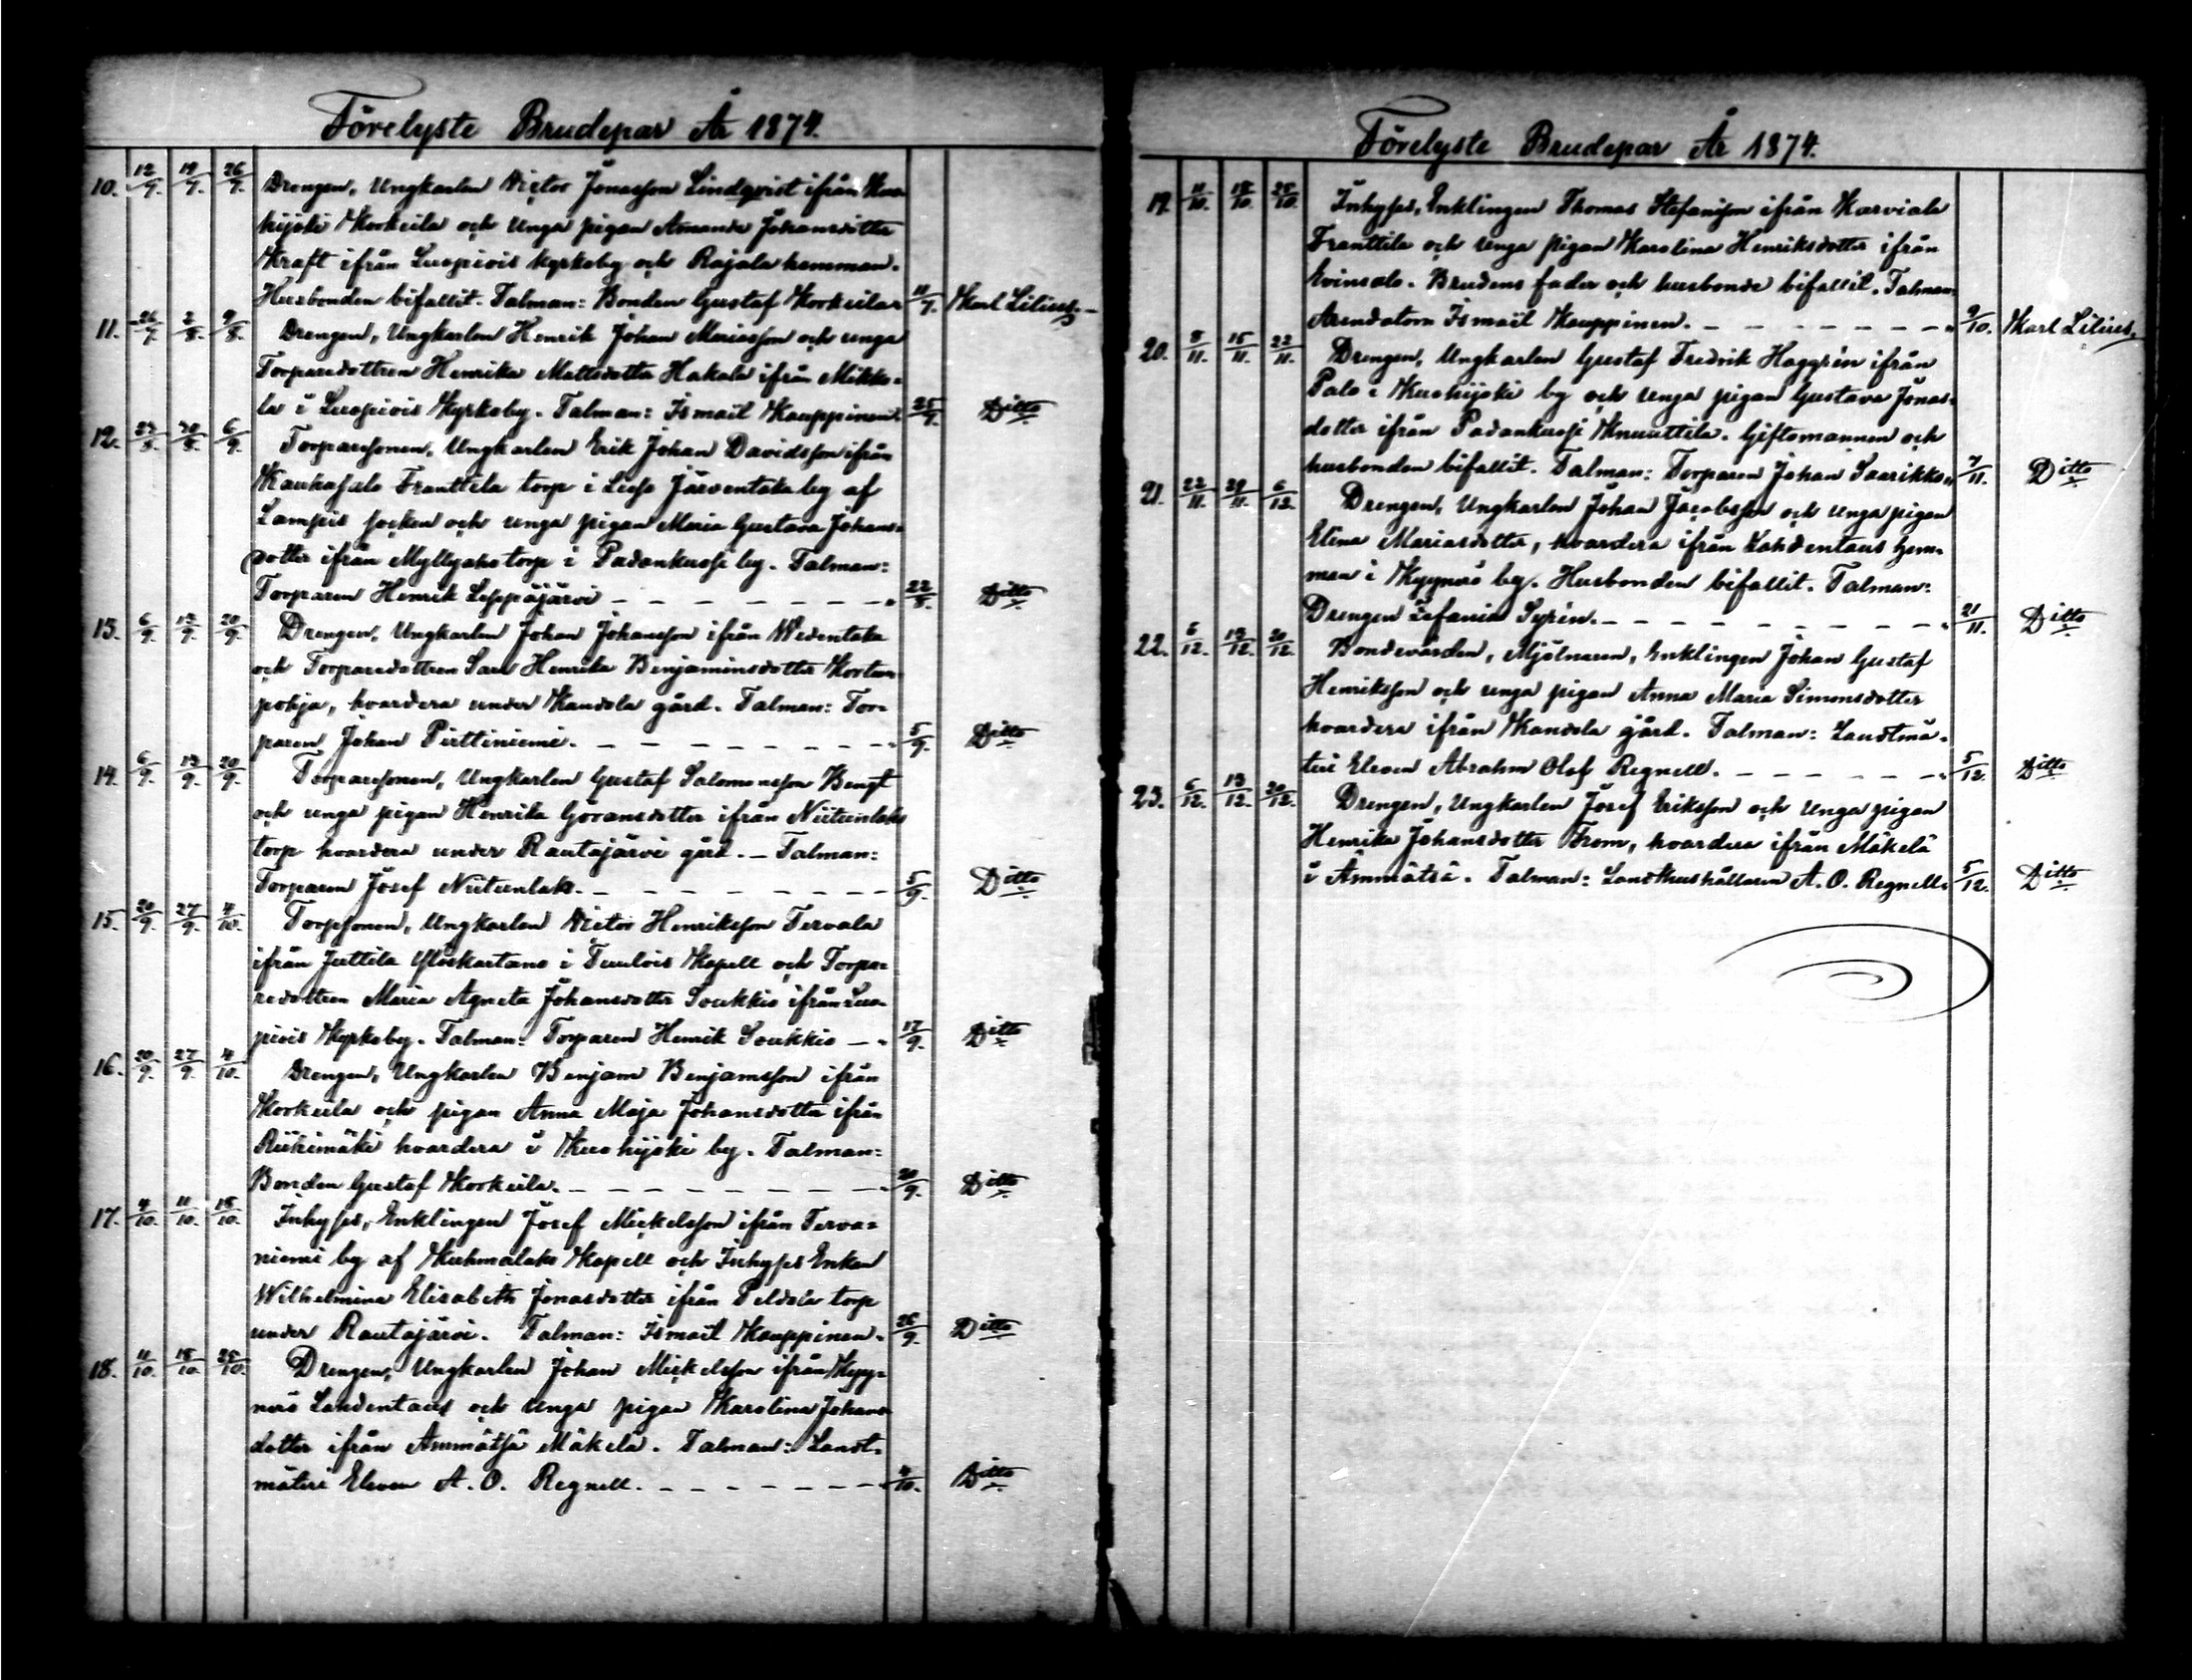 Förelyste Brudepar År 1874.
10. 12/7. 19/7. 26/7. Drengen, Ungkarlen Victor Jonasson Lindqvist ifrån Kuo-
hijoki Korkeila och unga pigan Amanda Johansdotter
Kraft ifrån Luopiois kyrkoby och Rajala hemman.
Husbonden bifallit. Talman: Bonden Gustaf Korkeila 11/7. Karl Lilius.
11. 26/7. 2/8. 9/8. Drengen, Ungkarlen Henrik Johan Mariasson och unga
Torparedottren Henrika Mattsdotter Hakala ifrån Mikko-
la i Luopiois Kyrkoby. Talman: Ismaël Kauppinen. 25/7. Ditto
12. 23/8. 30/8. 6/9. Torparesonen, Ungkarlen Erik Johan Davidsson ifrån
Kauhasalo Franttila torp i Järventaka by af
Lampis socken och unga pigan Maria Gustava Johans-
dotter ifrån Myllyaho torp i Padankoski by. Talman:
Torparen Henrik Leppäjärvi 22/8. Ditto
13. 6/9. 13/9. 20/9. Drengen, Ungkarlen Johan Johansson ifrån Wedentaka
och Torparedottren Sara Henrika Benjaminsdotter Korten-
pohja, hvardera under Kandola gård. Talman: Tor-
paren Johan Pirttiniemi. 5/9. Ditto
14. 6/9. 13/9. 20/9. Torparesonen, Ungkarlen Gustaf Salomonsson Bengt
och unga pigan Henrika Göransdotter ifrån
torp hvardera under Rautajärvi gård. Talman:
Torparen Josef 5/9. Ditto
15. 20/9. 27/9. 4/10. Torpsonen, Ungkarlen Victor Henriksson Tervala
ifrån Juttila Yloskartano i Tuulois Kapell och Torpa-
redottren Maria Agneta Johansdotter Soukkio ifrån Luo-
piois Kyrkoby. Talman: Torparen Henrik Soukkio 17/9. Ditto
16. 20/9. 27/9. 4/10. Drengen, Ungkarlen Benjam Benjamsson ifrån
Korkeila och pigan Anna Maja Johansdotter ifrån
Riihimäki hvardera i Kuohijoki by. Talman:
Bonden Gustaf Korkeila. 20/9. Ditto
17. 4/10. 11/10. 18/10. Inhyses, Enklingen Josef Mickelsson ifrån Terva-
niemi by af Kuhmalaks Kapell och Inhyses Enkan
Wilhelmina Elisabeth Jonasdotter ifrån Peldola torp
under Rautajärvi. Talman: Ismaël Kauppinen. 26/9. Ditto
18. 11/10. 18/10. 25/10. Drengen, Ungkarlen Johan Mickelsson ifrån Kyy-
närö Lahdentaus och unga pigan Karolina Johans-
dotter ifrån Ammätsä Mäkelä. Talman: Landt-
mäteri Eleven A. O. Regnell. 4/10. Ditto
Förelyste Brudepar År 1874.
19. 11/10. 18/10. 25/10. Inhyses, Enklingen Thomas Stefansson ifrån Karviala
Franttila och unga pigan Karolina Henriksdotter ifrån
Evinsalo. Brudens fader och husbonde bifallit. Talman:
Arendatorn Ismaël Kauppinen. 9/10. Karl Lilius.
20. 8/11. 15/11. 22/11. Drengen, Ungkarlen Gustaf Fredrik Haggrén ifrån
Palo i Kuohijoki by och unga pigan Gustava Jonas-
dotter ifrån Padankoski Knuuttila. Giftomannen och
husbonden bifallit. Talman: Torparen Johan Saarikko 7/11. Ditto
21. 22/11. 29/11. 6/12. Drengen, Ungkarlen Johan Jacobsson och unga pigan
Elina Mariasdotter, hvardera ifrån Lahdentaus hem-
man i Kyynärö by. Husbonden bifallit. Talman:
Drengen Zefanias Syrén. 21/11. Ditto
22. 6/12. 13/12. 20/12. Bondevärden, Mjölnaren, Enklingen Johan Gustaf
Henriksson och unga pigan Anna Maria Simonsdotter
hvardera ifrån Kandola gård. Talman: Landtmä-
teri Eleven Abrahm Olof Regnell. 5/12. Ditto
23. 6/12. 13/12. 20/12. Drengen, Ungkarlen Josef Eriksson och unga pigan
Henrika Johansdotter From, hvardera ifrån Mäkelä
i Ämmätsä. Talman: Landthushållaren A. O. Regnell. 5/12. Ditto